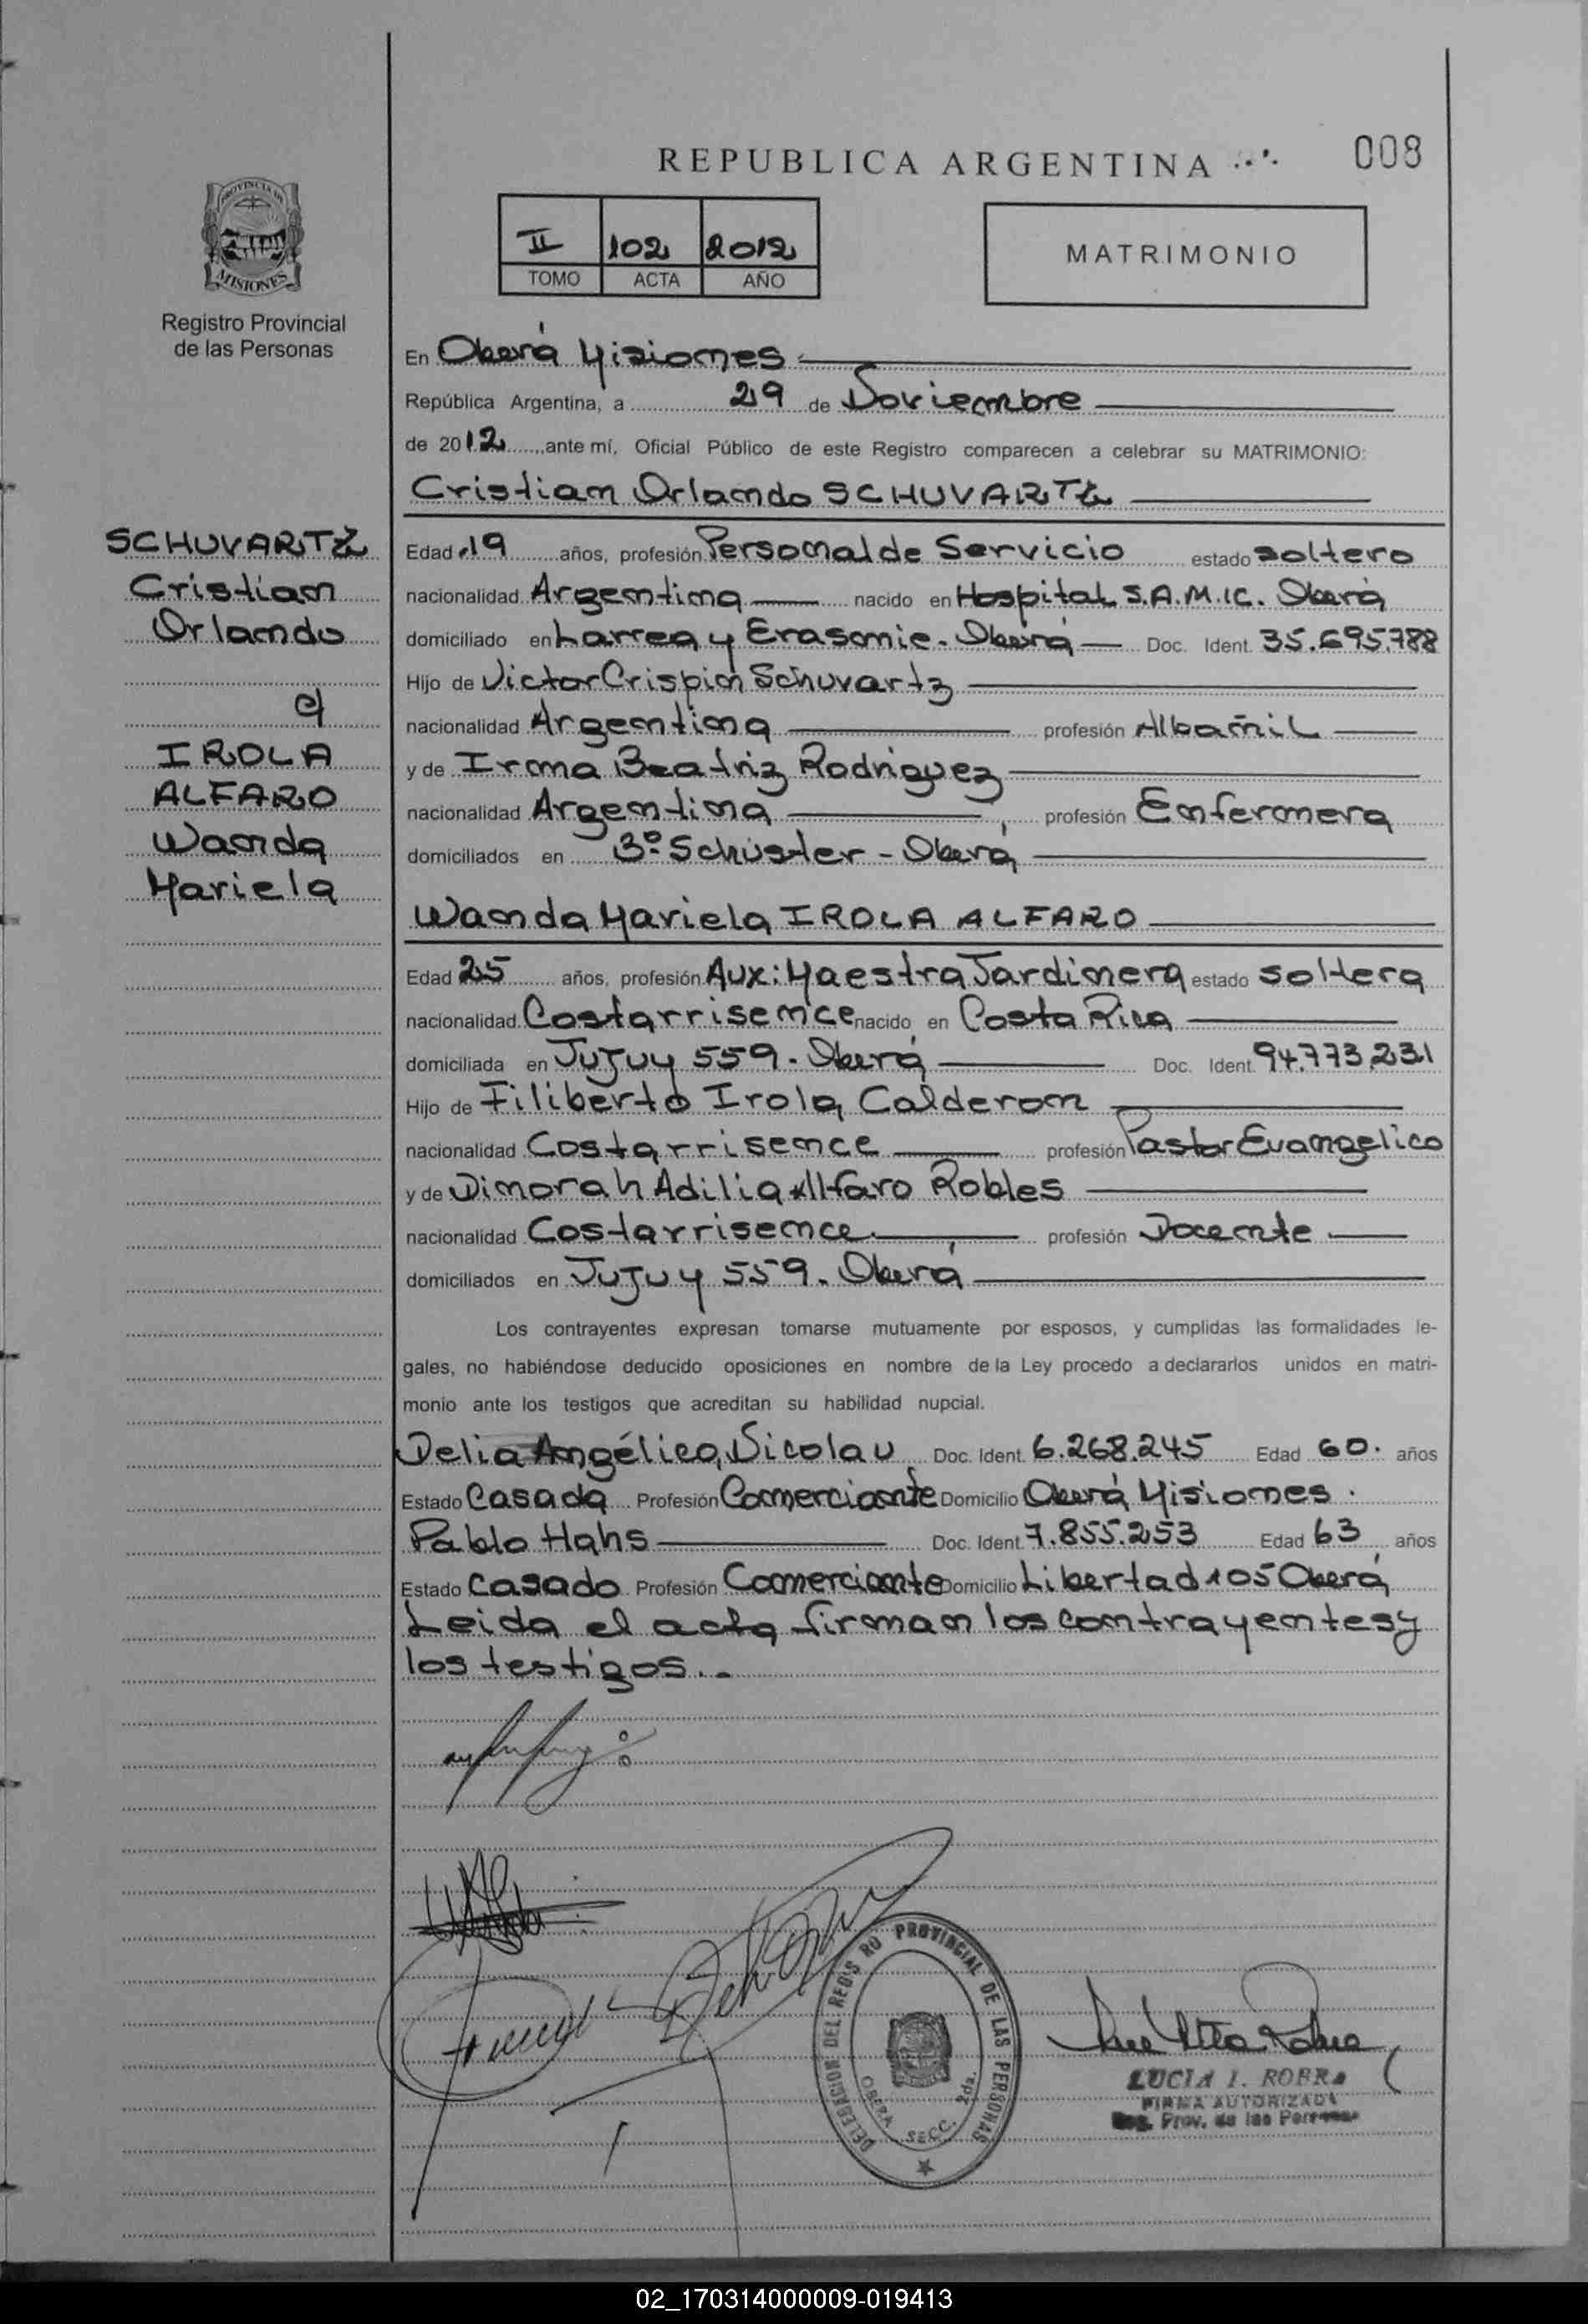 REPUBLICA ARGENTINA
008
PROVINCIA DE
MISIONES
Registro Provincial
de las Personas
II 102 2012
TOMO ACTA AÑO
MATRIMONIO
En Oberá Misiones
República Argentina, a 29 de Noviembre
de 2012, ante mí, Oficial Público de este Registro comparecen a celebrar su MATRIMONIO:
Cristian Orlando SCHUVARTZ
SCHUVARTZ
Cristian
Orlando
c/
IROLA
ALFARO
Wanda
Mariela
Edad 19 años, profesión Personal de Servicio estado soltero
nacionalidad Argentina nacido en Hospital S.A.M.IC. Oberá
domiciliado en Larrea y Erasmie - Oberá Doc. Ident. 35.695.788
Hijo de Victor Crispin Schuvartz
nacionalidad Argentina profesión Albañil
y de Irma Beatriz Rodriguez
nacionalidad Argentina profesión Enfermera
domiciliados en Bº Schuster - Oberá
Wanda Mariela IROLA ALFARO
Edad 25 años, profesión Aux: Maestra Jardinera estado soltera
nacionalidad Costarrisence nacido en Costa Rica
domiciliada en Jujuy 559. Oberá Doc. Ident. 94.773.231
Hijo de Filiberto Irola Calderon
nacionalidad Costarrisence profesión Pastor Evangelico
y de Dinorah Adilia Alfaro Robles
nacionalidad Costarrisence profesión Docente
domiciliados en Jujuy 559. Oberá
Los contrayentes expresan tomarse mutuamente por esposos, y cumplidas las formalidades le-
gales, no habiéndose deducido oposiciones en nombre de la Ley procedo a declararlos unidos en matri-
monio ante los testigos que acreditan su habilidad nupcial.
Delia Angélica Nicolau Doc. Ident. 6.268.245 Edad 60. años
Estado Casada Profesión Comerciante Domicilio Oberá Misiones.
Pablo Hahs Doc. Ident. 7.855.253 Edad 63 años
Estado Casado Profesión Comerciante Domicilio Libertad 105 Oberá
Leida el acta firman los contrayentes y
los testigos..-
DELEGACION DEL REGIS RO PROVINCIAL DE LAS PERSONAS
OBERA SECC. 2da.
LUCIA I. ROBRA
FIRMA AUTORIZADA
Reg. Prov. de las Personas
02_170314000009-019413